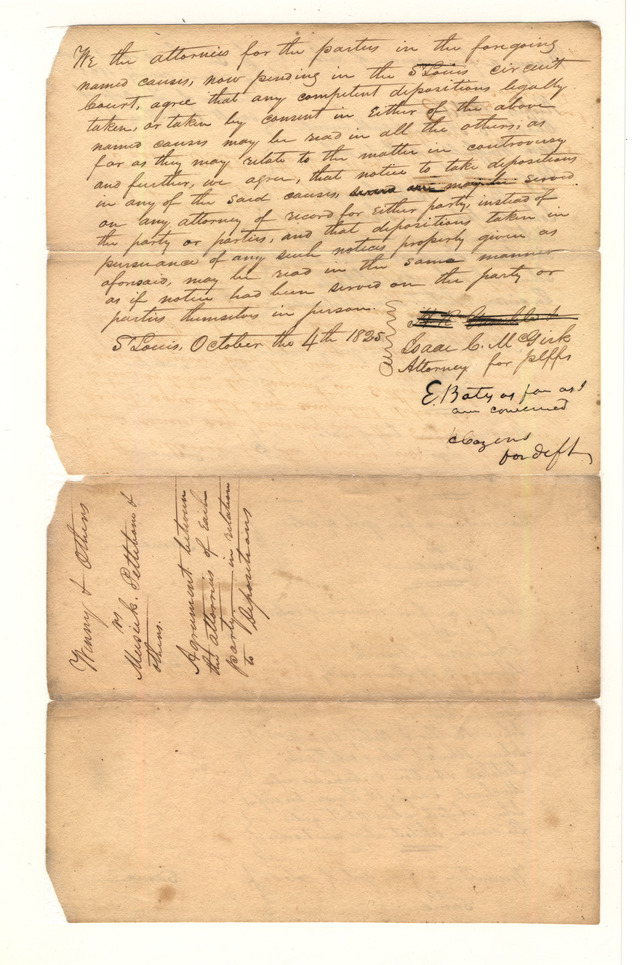 We the attornies for the parties in the foregoing
named causes, now pending in the St Louis circuit
Court, agree that any competent depositions legally
taken, or taken by consent in Either of the above
named causes may be read in all the others; as
far as they may relate to the matter in controversy
and further, we agree, that notice to take depositions
in any of the said causes, may be served
on any attorney of record for Either party, instead of
the party or parties, and that depositions taken in
pursuance of any such notices properly given as
aforesaid, may be read in the same manner
as if notice had been served on the party or
parties themselves in person.
St Louis, October the 4th 1825
Isaac C. McGirk
Attorney for plffs
E. Bates as far as I
am concerned
for deft
Winny & Others
vs
Musick, Pettibone &
others.
Agreement between
the attornies of Each
party in relation
to Depositions